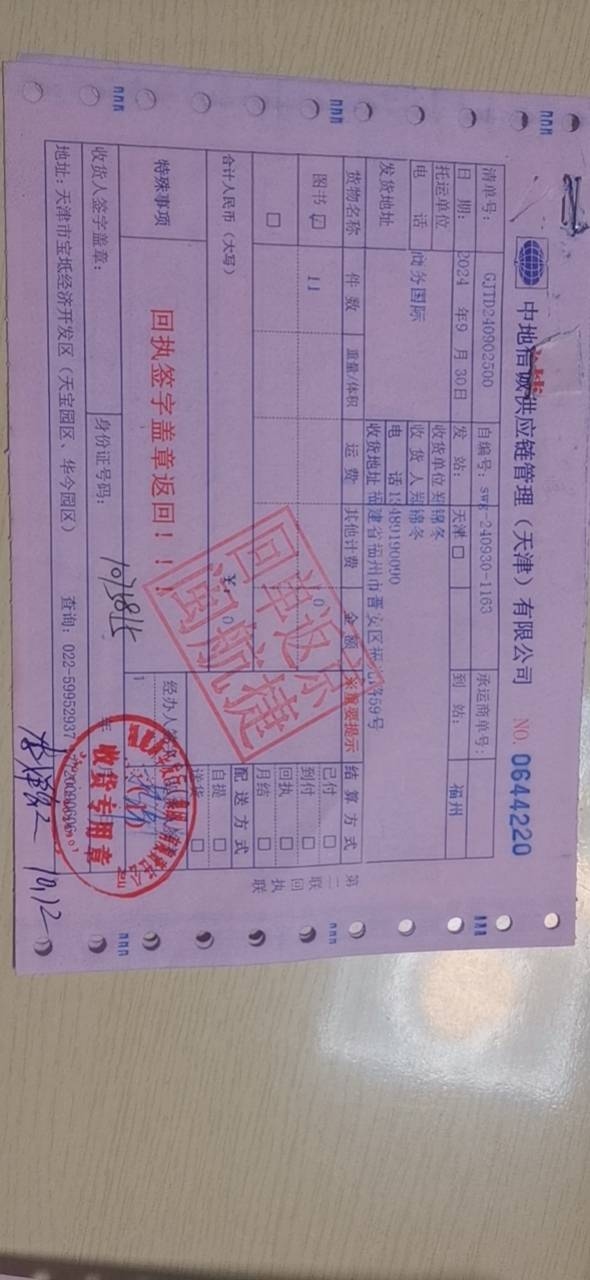 中地信诚供应链管理（天津）有限公司 NO. 0644220
清单号： GJTD240902500 自编号：swy-240930-1163 承运商单号：
日 期： 2024 年9 月 30日 发 站： 天津 到 站： 福州
托运单位 收货单位 锦冬
电 话 商务国际 收 货 人 锦冬
电 话
发货地址 收货地址 福建省福州市晋安区 359号
货物名称 件 数 重量/体积 运 费 其他计费 金 额 重要提示 结 算 方 式
图书 ☑ 11 0 已付 □
到付 □
□ 回执 □
月结 □
合计人民币（大写） ¥: 0 配 送 方 式
自提 □
送货 □
特殊事项 回执签字盖章返回！！！ 经办人签
收货人签字盖章： 身份证号码： 年
地址：天津市宝坻经济开发区（天宝园区、华今园区） 查询：022-59952937
第二联 回执联
回单返还
闽航捷
收货专用章
10.12